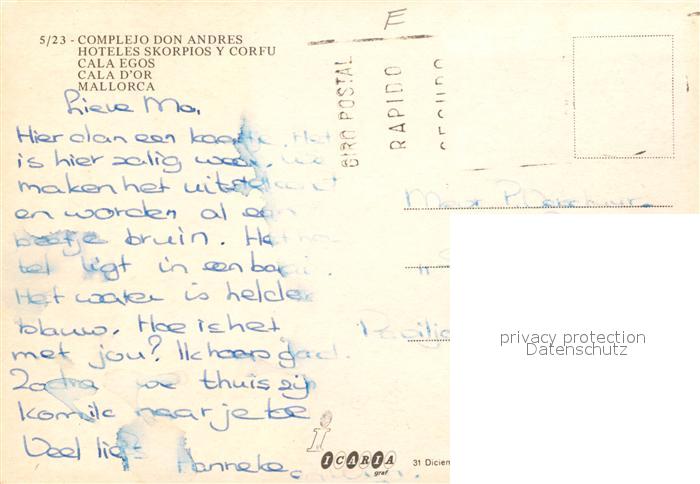 5/23 - COMPLEJO DON ANDRES
HOTELES SKORPIOS Y CORFU
CALA EGOS
CALA D'OR
MALLORCA
E
GIRO POSTAL
RAPIDO
Lieve Ma,
Hier dan een kaartje. Het
is hier zalig weer. We
maken het uitstekend
en worden al een
beetje bruin. Het ho
tel ligt in een baai.
Het water is helder
blauw. Hoe is het
met jou? Ik hoop goed.
Zodra we thuis zijn
kom ik naar je toe
Veel liefs
Hanneke
ICARIA
graf
31 Diciem
privacy protection
Datenschutz